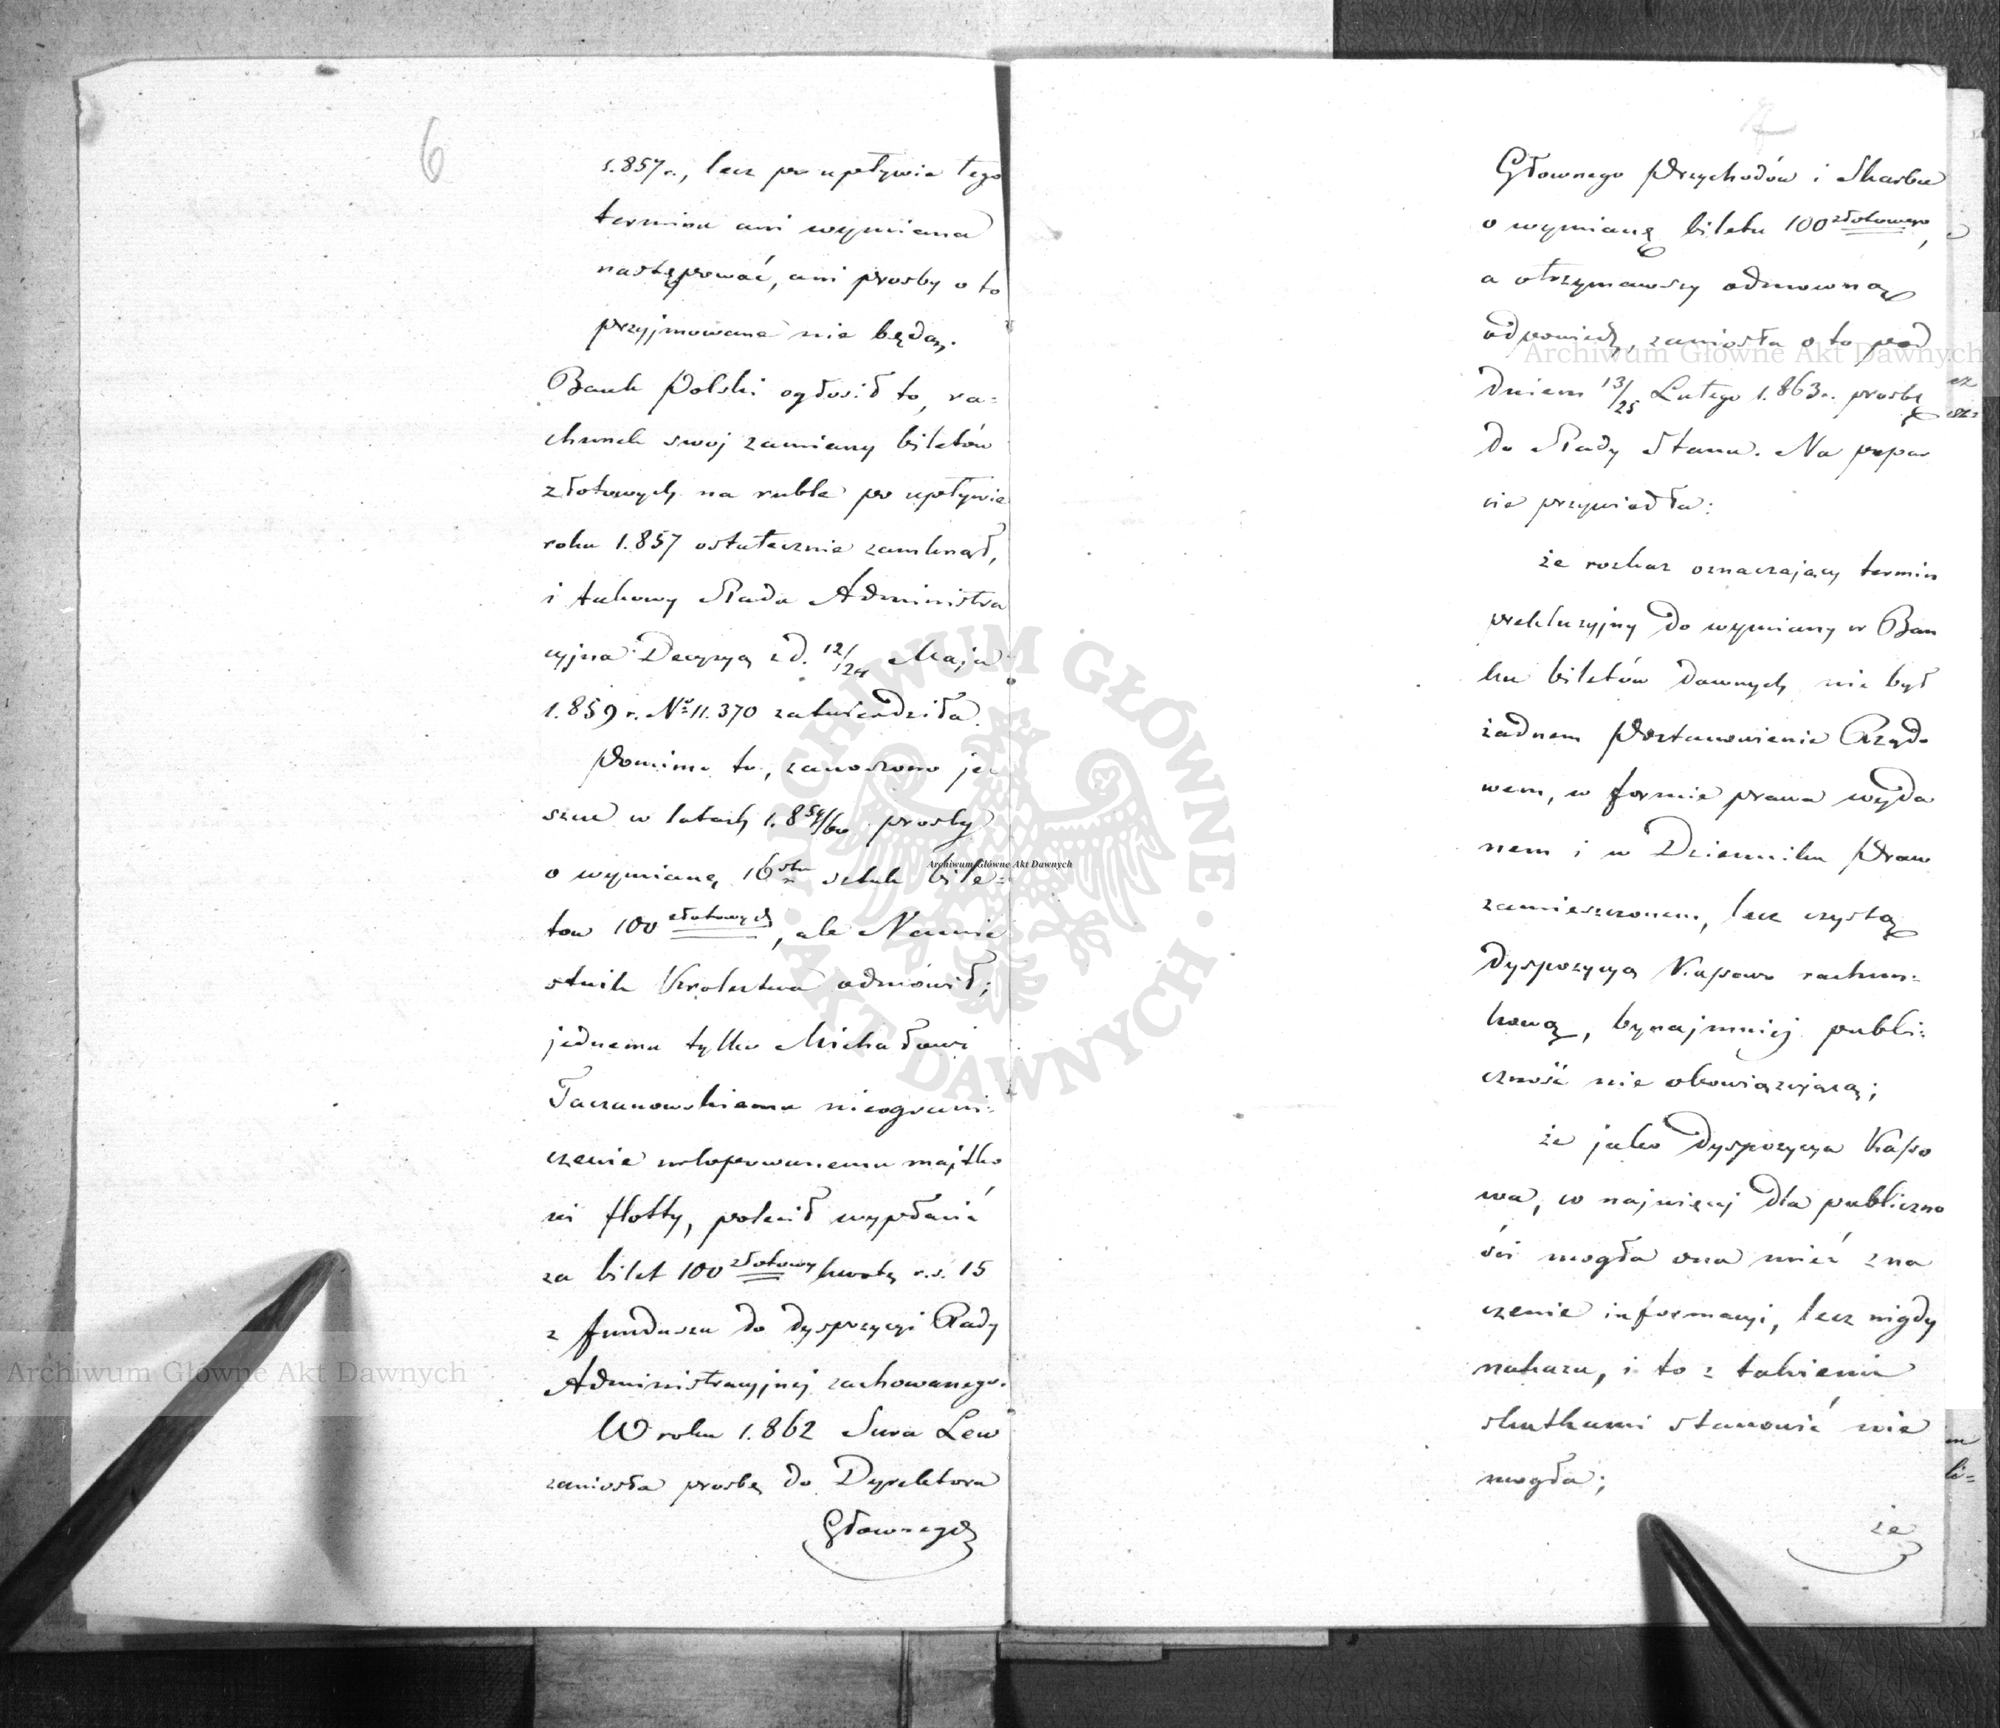 6
1.857 r., lecz po upływie tego
terminu ani wymiana
następować, ani prośby o to
przyjmowane nie będą.
Bank Polski ogłosił to, ra=
chunek swoj zamiany biletów
złotowych na ruble po upływie
roku 1.857 ostatecznie zamknął,
i takowy Rada Administra
cyjna Decyzyą z d. 12/24 Maja
1.859 r. No 11.370 zatwierdziła.
Pomimo to, zanoszono je=
szcze w latach 1.859/60 prośby
o wymianę 16stu sztuk bile=
tow 100 złotowych, ale Namie
stnik Krolestwa odmówił;
jednemu tylko Michałowi
Taczanowskiemu nieograni=
czenie urlopowanemu majtko
wi flotty, polecił wypłacić
za bilet 100 złotowy kwotę r.s. 15
z funduszu do dyspozycyi Rady
Administracyjnej zachowanego.
W roku 1.862 Sura Lew
zaniosła prośbę do Dyrektora
Głownego
Głownego Przychodów i Skarbu
o wymianę biletu 100 złotowego,
a otrzymawszy odmowną
odpowiedź, zaniosła o to pod
dniem 13/25 Lutego 1.863 r. prosbę
do Rady Stanu. Na popar
cie przywiodła:
że rozkaz oznaczający termin
prekluzyjny do wymiany w Ban
ku biletów dawnych nie był
żadnem Postanowienie Rządo
wem, w formie prawa wyda
nem i w Dzienniku Praw
zamieszczonem, lecz czystą
dyspozycyą Kassowo rachun=
kową, bynajmniej publi=
czność nie obowiązującą;
że jako dyspozycya Kasso
wa, co najwięcej dla publiczno
ści mogła ona mieć zna
czenie informacyi, lecz nigdy
nakazu, i to z takiemi
skutkami stanowić nie
mogła;
że
Archiwum Główne Akt Dawnych
Archiwum Główne Akt Dawnych
Archiwum Główne Akt Dawnych
ARCHIWUM GŁÓWNE
AKT DAWNYCH